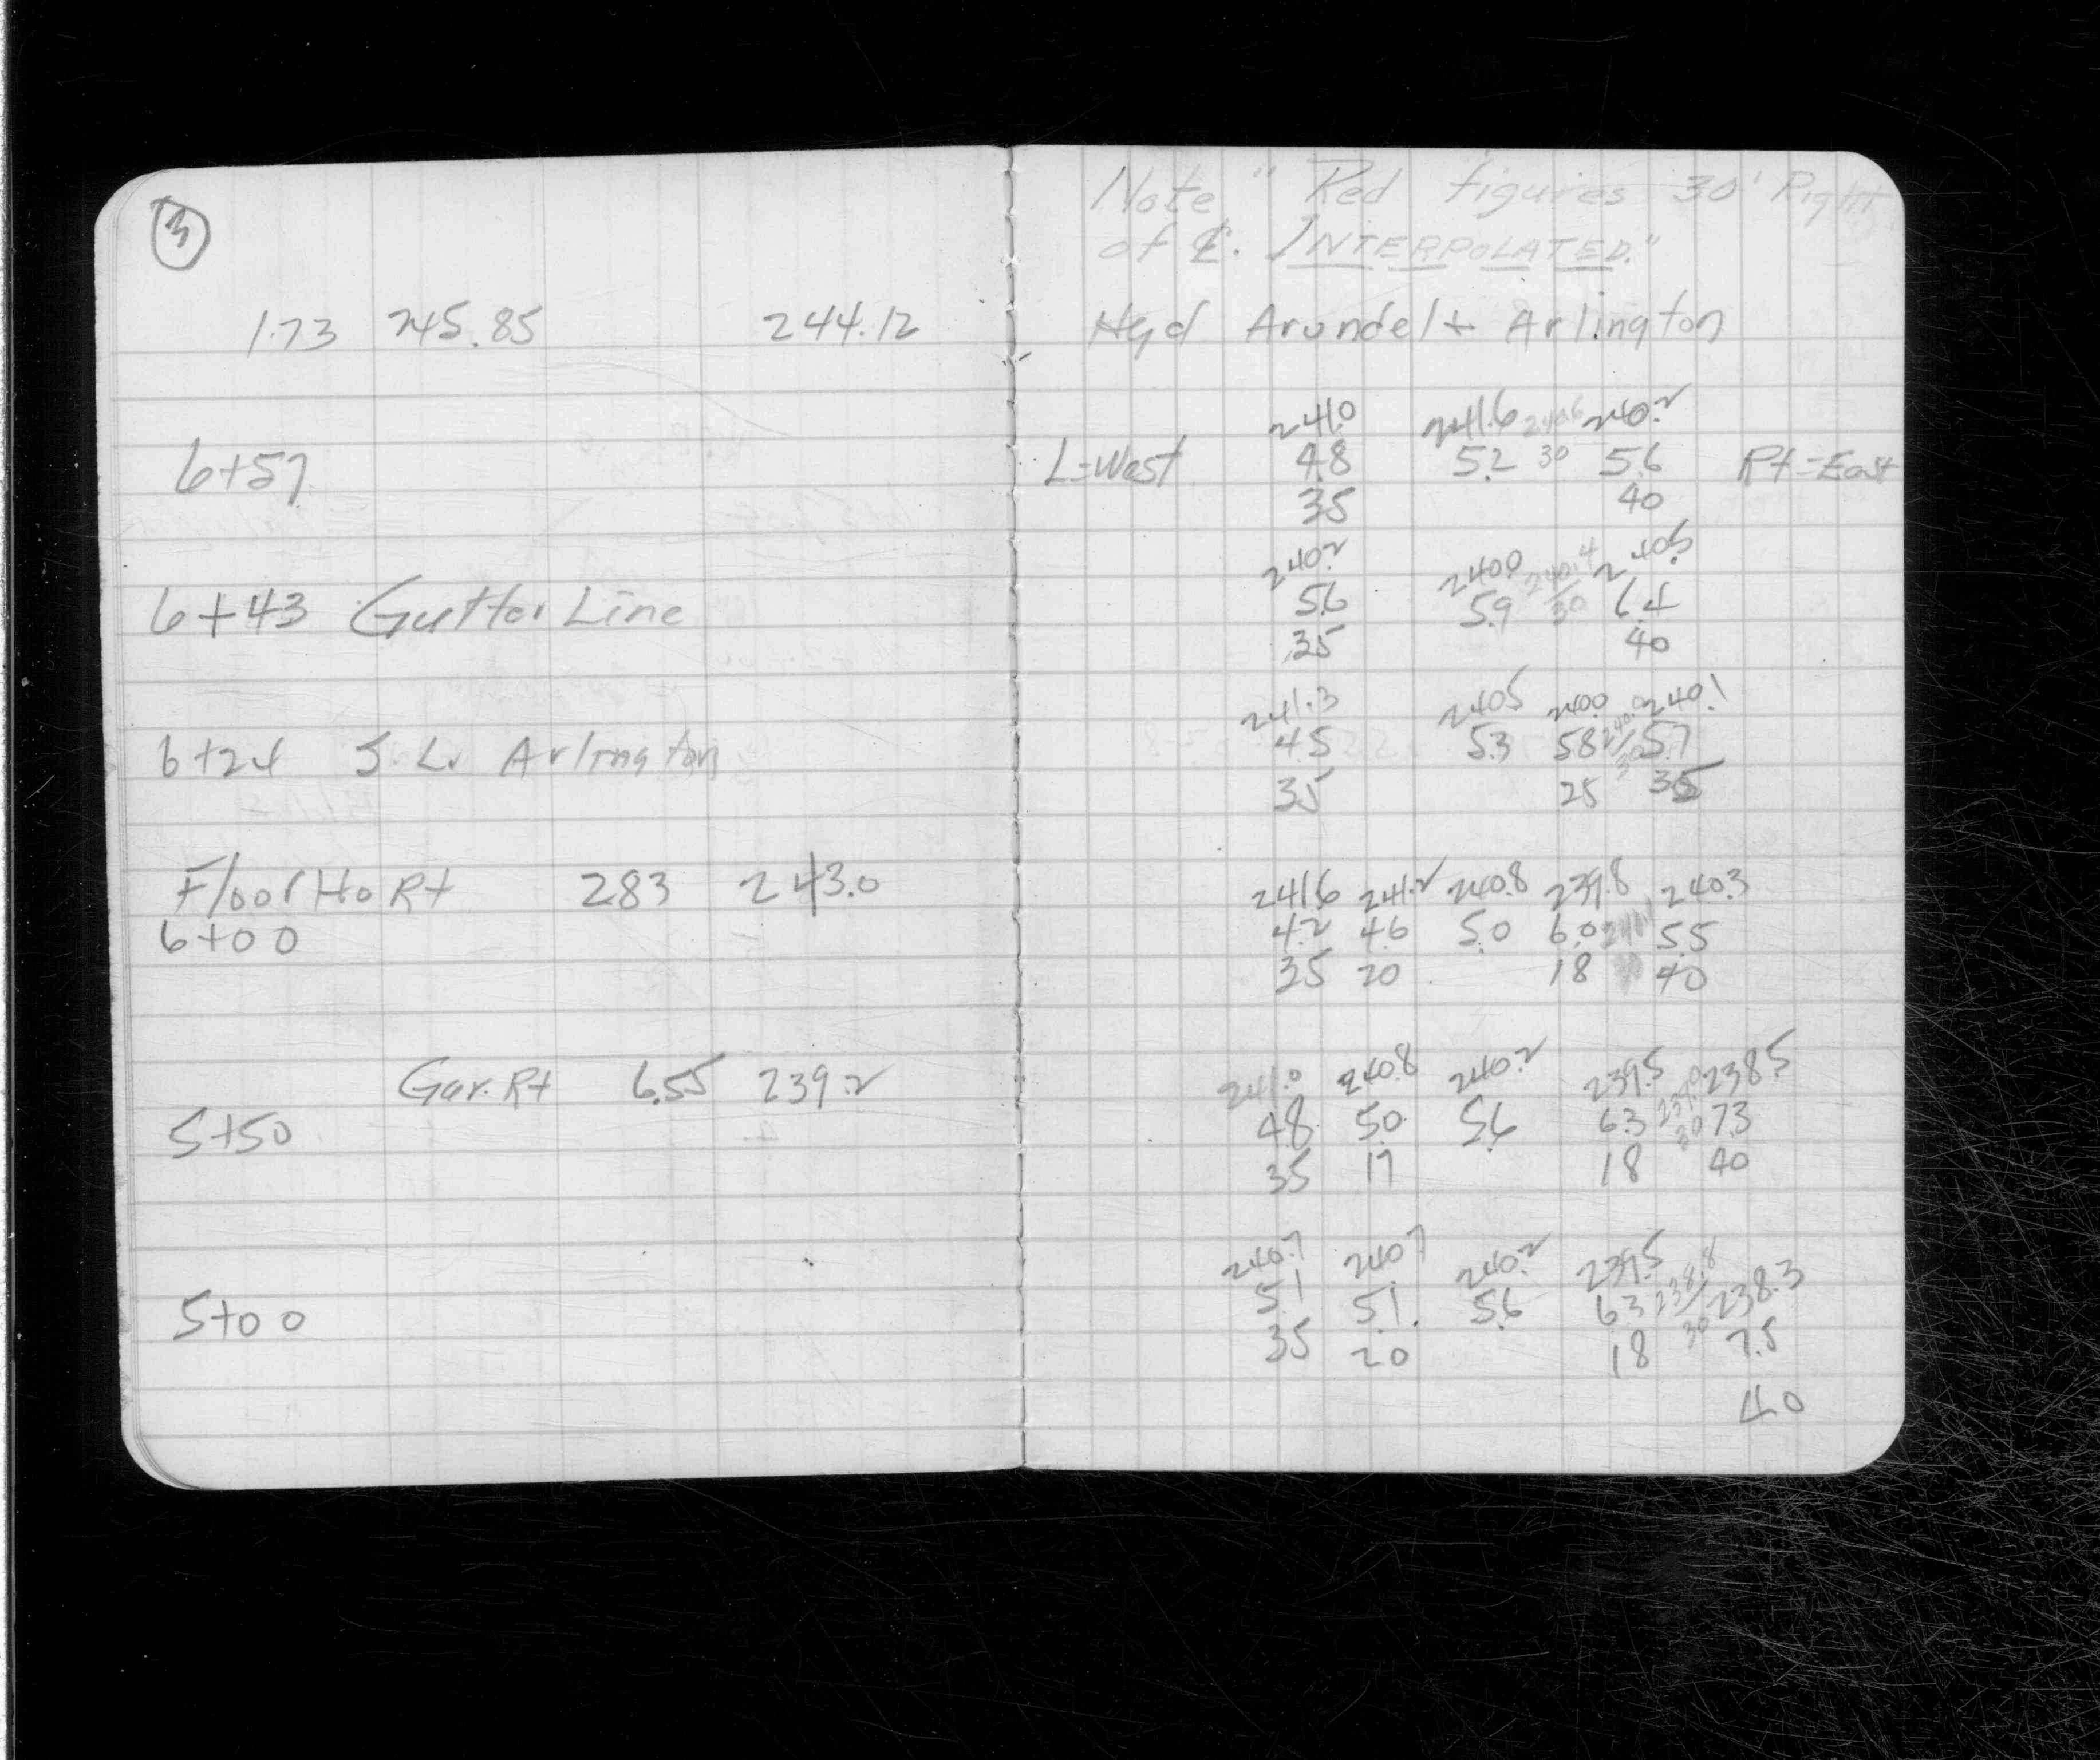 3
1.73 245.85 244.12
6+57
6+43 Gutter Line
6+24 S. L. Arlington
Floor Ho Rt 283 243.0
6+00
Gar. Rt 6.55 239.2
5+50
5+00
Note "Red figures 30' Right
of ℄. INTERPOLATED."
Hyd Arundel + Arlington
241.0 241.6 240.6 240.2
L=West 4.8 5.2 30 5.6 Rt=East
35 40
240.2 240.0 240.4 240.5
5.6 5.9 30 6.4
35 40
241.3 240.5 240.0 240.0 240.1
4.5 5.3 5.8 5.7
35 25 30 35
241.6 241.2 240.8 239.8 240.3
4.2 4.6 5.0 6.0 5.5
35 20 18 40
241.0 240.8 240.2 239.5 239.0 238.5
4.8 5.0 5.6 6.3 30 7.3
35 17 18 40
240.7 240.7 240.2 239.5 238.8 238.3
5.1 5.1 5.6 6.3 30 7.5
35 20 18 40